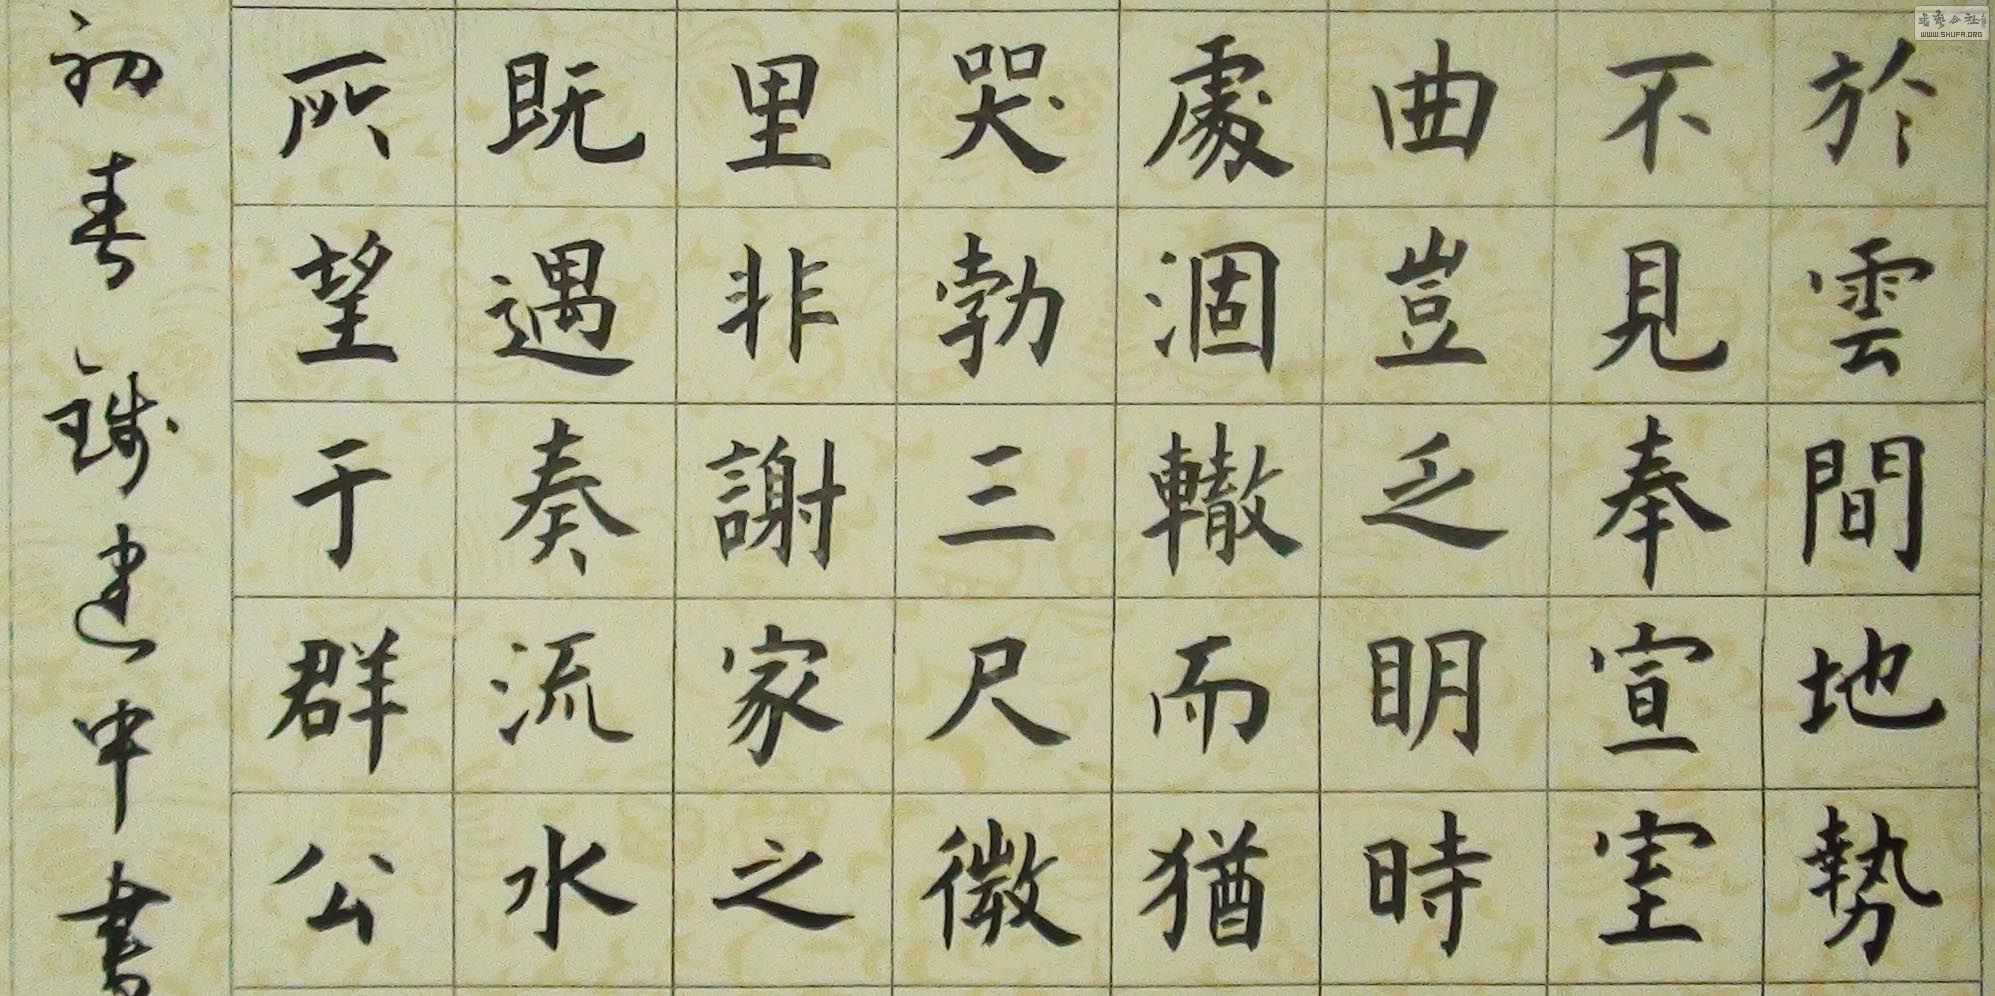 於雲間地勢
不見奉宣室
曲豈乏眀時
處涸轍而猶
哭勃三尺微
里非謝家之
既遇奏流水
所望于群公
初春錢建中書
書藝公社
WWW.SHUFA.ORG